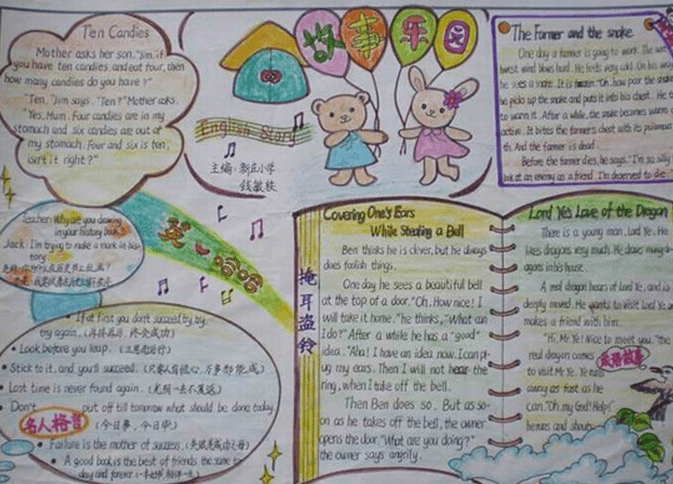 Ten Candies
Mother asks her son, "Jim, if
you have ten candies, and eat four, then
how many candies do you have?"
"Ten," Jim says. "Ten?" Mother asks.
"Yes, Mum. Four candies are in my
stomach and six candies are out of
my stomach. Four and six is ten,
isn't it right?"
故事乐园
English Story
主编：新庄小学
钱敏轶
The Farmer and the snake
One day a farmer is going to work. The
west wind blows hard. He feels very cold. On his way
he sees a snake. It is frozen. "Oh, how poor the snake
he picks up the snake and puts it into his chest. He t
to warm it. After a while, the snake becomes warm
active. It bites the farmer's chest with its poisonous
th. And the farmer is dead.
Before the farmer dies, he says, "I'm so silly
look at an enemy as a friend. I'm deserved to die
Teacher: Why are you drawing
in your history book?
Jack: I'm trying to make a mark in his
tory.
英 哈哈
If at first you don't succeed, try, try
try again. (再接再厉，终会成功)
Look before you leap. (三思而后行)
Stick to it, and you'll succeed. (只要人有恒心，万事都能成)
Lost time is never found again. (光阴一去不复返)
Don't put off till tomorrow what should be done today.
名人格言 (今日事，今日毕)
Failure is the mother of success. (失败是成功之母)
A good book is the best of friends, the same to
day and forever.
掩耳盗铃
Covering One's Ears
While Stealing a Bell
Ben thinks he is clever, but he always
does foolish things.
One day he sees a beautiful bell
at the top of a door. "Oh, How nice! I
will take it home." he thinks, "What can
I do?" After a while he has a "good"
idea. "Aha! I have an idea now. I can pl-
ug my ears. Then I will not hear the
ring, when I take off the bell.
Then Ben does so. But as so-
on as he takes off the bell, the owner
opens the door. "What are you doing?"
the owner says angrily.
Lord Ye's Love of the Dragon
There is a young man, Lord Ye. He
likes dragons very much. He draws many dr-
agons in his house.
A real dragon hears of Lord Ye, and is
deeply moved. He wants to visit Lord Ye an
makes a friend with him.
"Hi, Mr Ye! Nice to meet you," the
real dragon comes
to visit Mr Ye. Ye runs
away as fast as he
can. "Oh, my God! Help!"
he runs and shouts.
成语故事